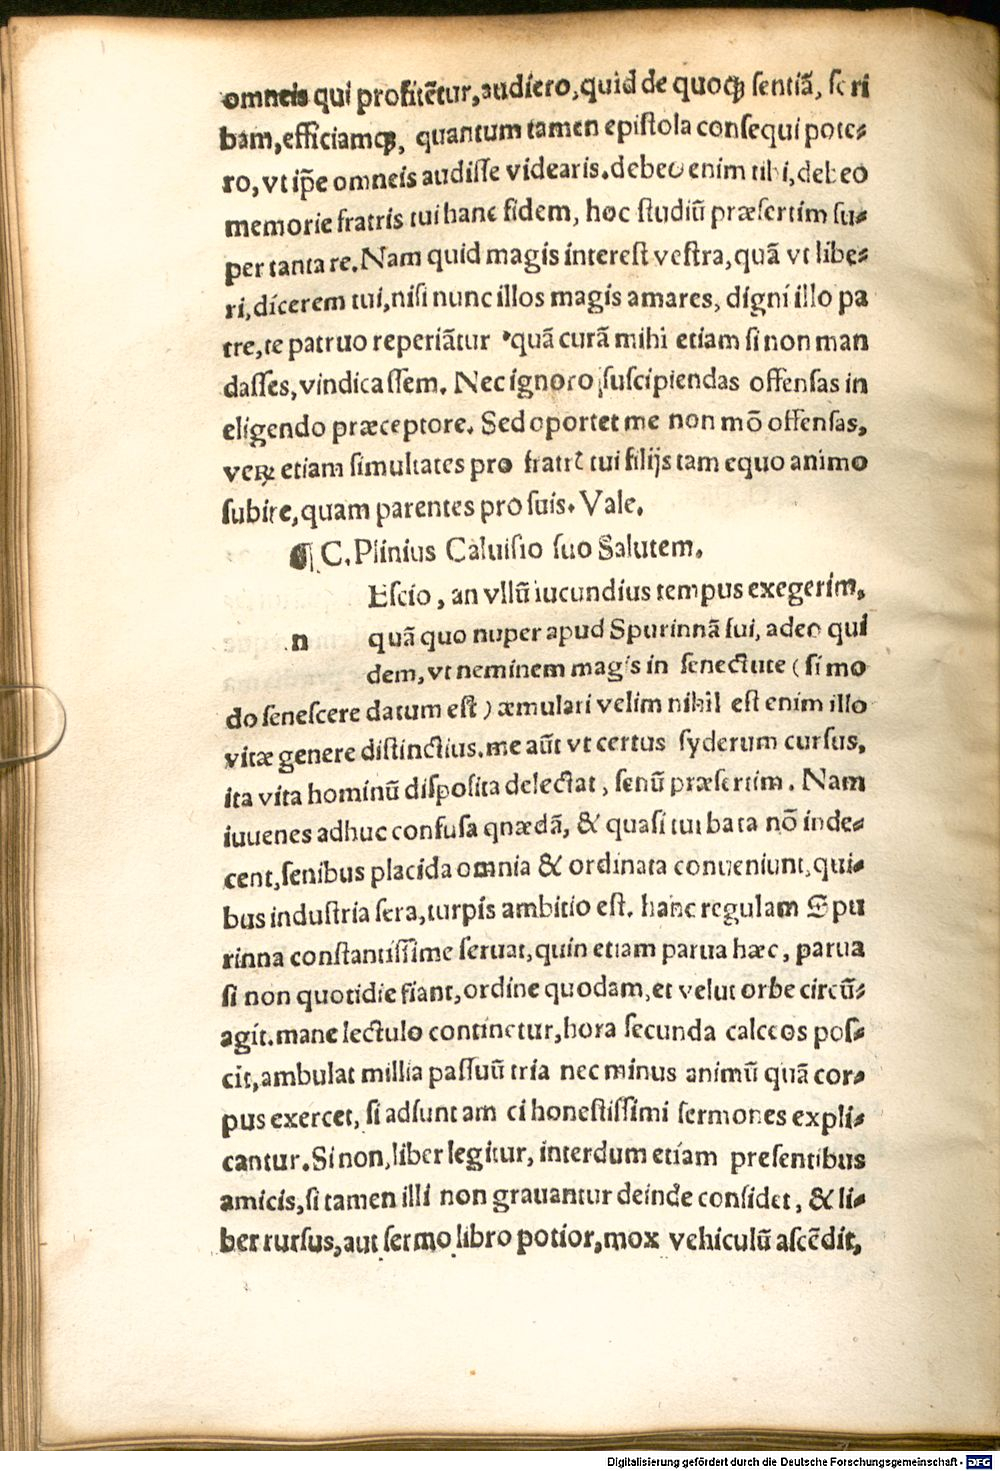 omneis qui profitẽtur, audiero, quid de quoqꝫ ſentiã, ſcri
bam, efficiamqꝫ, quantum tamen epiſtola conſequi pote⸗
ro, vt ip̃e omneis audiſſe videaris. debeo enim tibi, debeo
memorie fratris tui hanc fidem, hoc ſtudiũ præſertim ſu⸗
per tanta re. Nam quid magis intereſt veſtra, quã vt libe⸗
ri, dicerem tui, niſi nunc illos magis amares, digni illo pa
tre, te patruo reperiãtur quã curã mihi etiam ſi non man
daſſes, vindicaſſem. Nec ignoro ſuſcipiendas offenſas in
eligendo præceptore. Sed oportet me non mõ offenſas,
veꝝ etiam ſimultates pro fratrꝭ tui filijs tam equo animo
ſubire, quam parentes pro ſuis. Vale.
¶ C. Plinius Caluiſio ſuo Salutem.
Eſcio, an vllũ iucundius tempus exegerim,
n quã quo nuper apud Spurinnã fui, adeo qui
dem, vt neminem magis in ſenectute (ſi mo
do ſeneſcere datum eſt) æmulari velim nihil eſt enim illo
vitæ genere diſtinctius. me aũt vt certus ſyderum curſus,
ita vita hominũ diſpoſita delectat, ſenũ præſertim. Nam
iuuenes adhuc confuſa qnædã, & quaſi turbata nõ inde⸗
cent, ſenibus placida omnia & ordinata conueniunt, qui⸗
bus induſtria ſera, turpis ambitio eſt. hanc regulam Spu
rinna conſtantiſſime ſeruat, quin etiam parua hæc, parua
ſi non quotidie fiant, ordine quodam, et velut orbe circũ⸗
agit. mane lectulo continetur, hora ſecunda calceos poſ⸗
cit, ambulat millia paſſuũ tria nec minus animũ quã cor⸗
pus exercet, ſi adſunt am ci honeſtiſſimi ſermones expli⸗
cantur. Si non, liber legitur, interdum etiam preſentibus
amicis, ſi tamen illi non grauantur deinde conſidet, & li⸗
ber rurſus, aut ſermo libro potior, mox vehiculũ aſcẽdit,
Digitalisierung gefördert durch die Deutsche Forschungsgemeinschaft - DFG